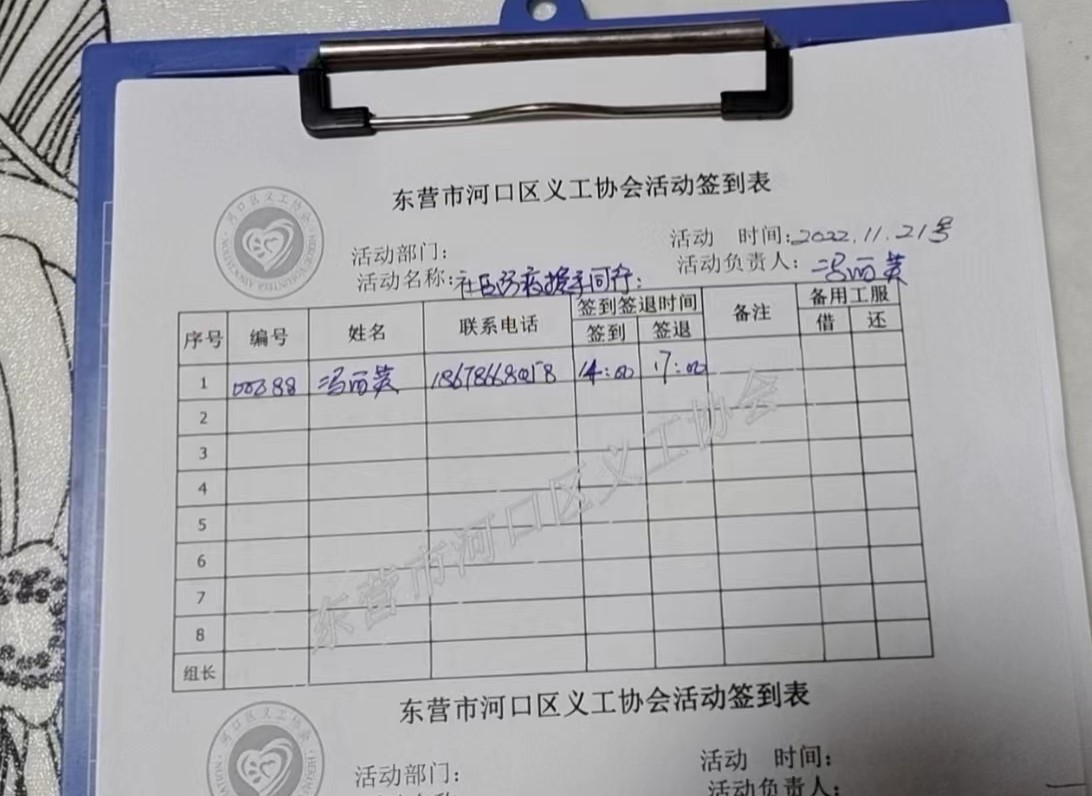 东营市河口区义工协会活动签到表
河口区义工协会
活动部门：
活动 时间：2022.11.21号
活动名称：社区防疫携手同行：
活动负责人：冯丽英
序号 编号 姓名 联系电话 签到签退时间 备注 备用工服
签到 签退 借 还
1 00388 冯丽英 18678668058 14:00 17:00
2
3
4
5
6
7
8
组长
东营市河口区义工协会
东营市河口区义工协会活动签到表
河口区义工协会
活动部门：
活动 时间：
活动负责人：